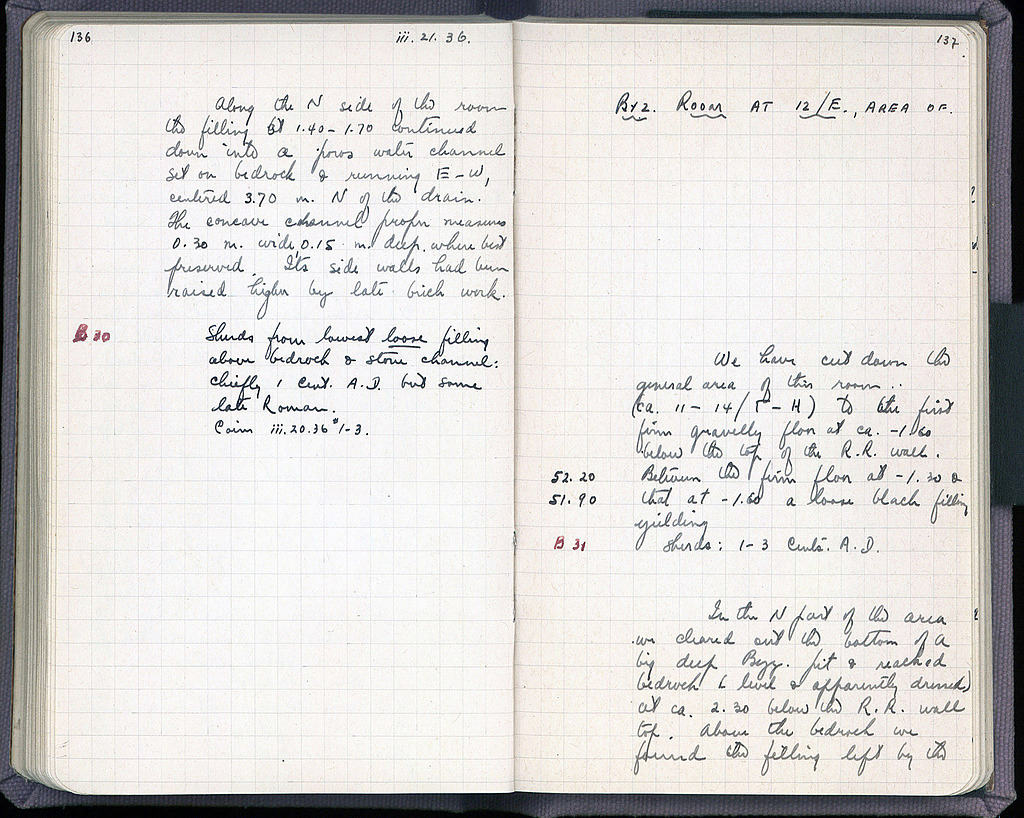 136
iii. 21. 36.
Along the N side of the room
the filling at 1.40 - 1.70 continued
down into a poros water channel
set on bedrock & running E - W,
centered 3.70 m. N of the drain.
The concave channel proper measures
0.30 m. wide, 0.15 m. deep, where best
preserved. Its side walls had been
raised higher by late brick work.
B 30
Sherds from lowest loose filling
above bedrock & stone channel:
chiefly 1 Cent. A.D. but some
late Roman.
Coins iii.20.36 #1-3.
137
Byz. Room at 12/E., area of.
We have cut down the
general area of this room..
(ca. 11 - 14/Γ - H) to the first
firm gravelly floor at ca. -1.60
below the top of the R.R. wall.
52.20 Between the firm floor at -1.30 &
51.90 that at -1.60 a loose black filling
yielding
B 31 Sherds: 1-3 Cents. A.D.
In the N part of the area
we cleared out the bottom of a
big deep Byz. pit & reached
bedrock (level & apparently dressed)
at ca. 2.30 below the R.R. wall
top. Above the bedrock we
found the filling left by the